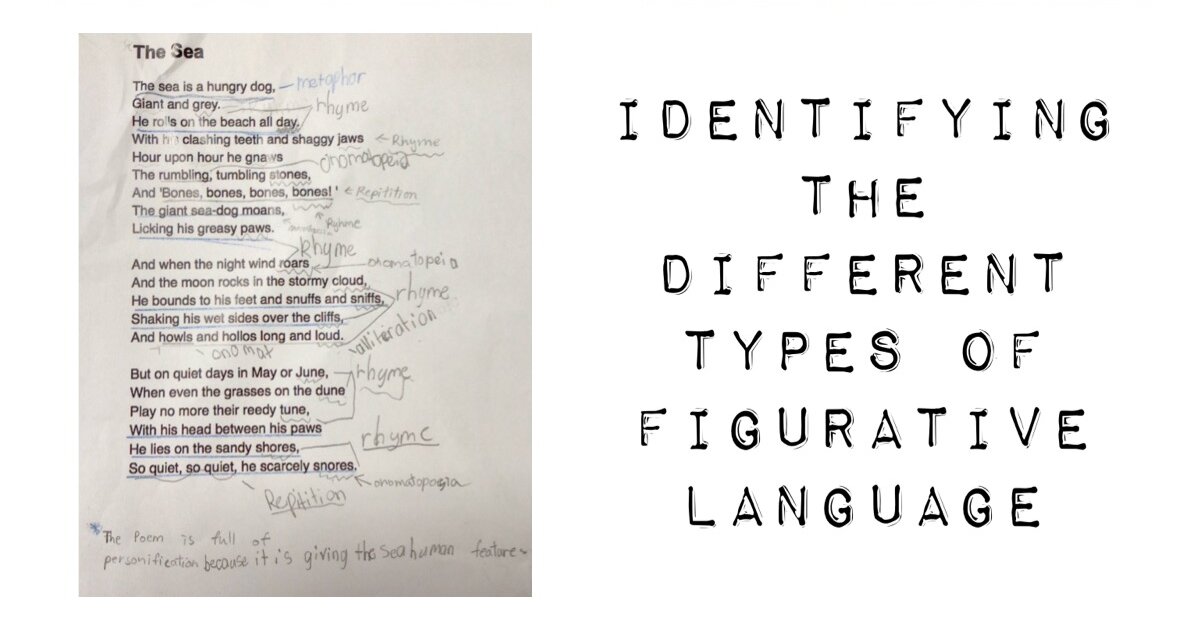 The Sea
The sea is a hungry dog, – metaphor
Giant and grey. rhyme
He rolls on the beach all day.
With his clashing teeth and shaggy jaws ← Rhyme
Hour upon hour he gnaws onomatopeia
The rumbling, tumbling stones,
And 'Bones, bones, bones, bones!' ← Repitition
The giant sea-dog moans, Ryhme
Licking his greasy paws.
Rhyme
And when the night wind roars onomatopeia
And the moon rocks in the stormy cloud,
He bounds to his feet and snuffs and sniffs, rhyme
Shaking his wet sides over the cliffs,
And howls and hollos long and loud. alliteration
onomat
But on quiet days in May or June, rhyme
When even the grasses on the dune
Play no more their reedy tune,
With his head between his paws
He lies on the sandy shores, rhyme
So quiet, so quiet, he scarcely snores.
onomatopoeia
Repitition
*The Poem is full of
personification because it is giving the sea human features
IDENTIFYING
THE
DIFFERENT
TYPES OF
FIGURATIVE
LANGUAGE